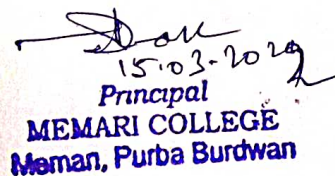 15.03.2022
Principal
MEMARI COLLEGE
Memari, Purba Burdwan